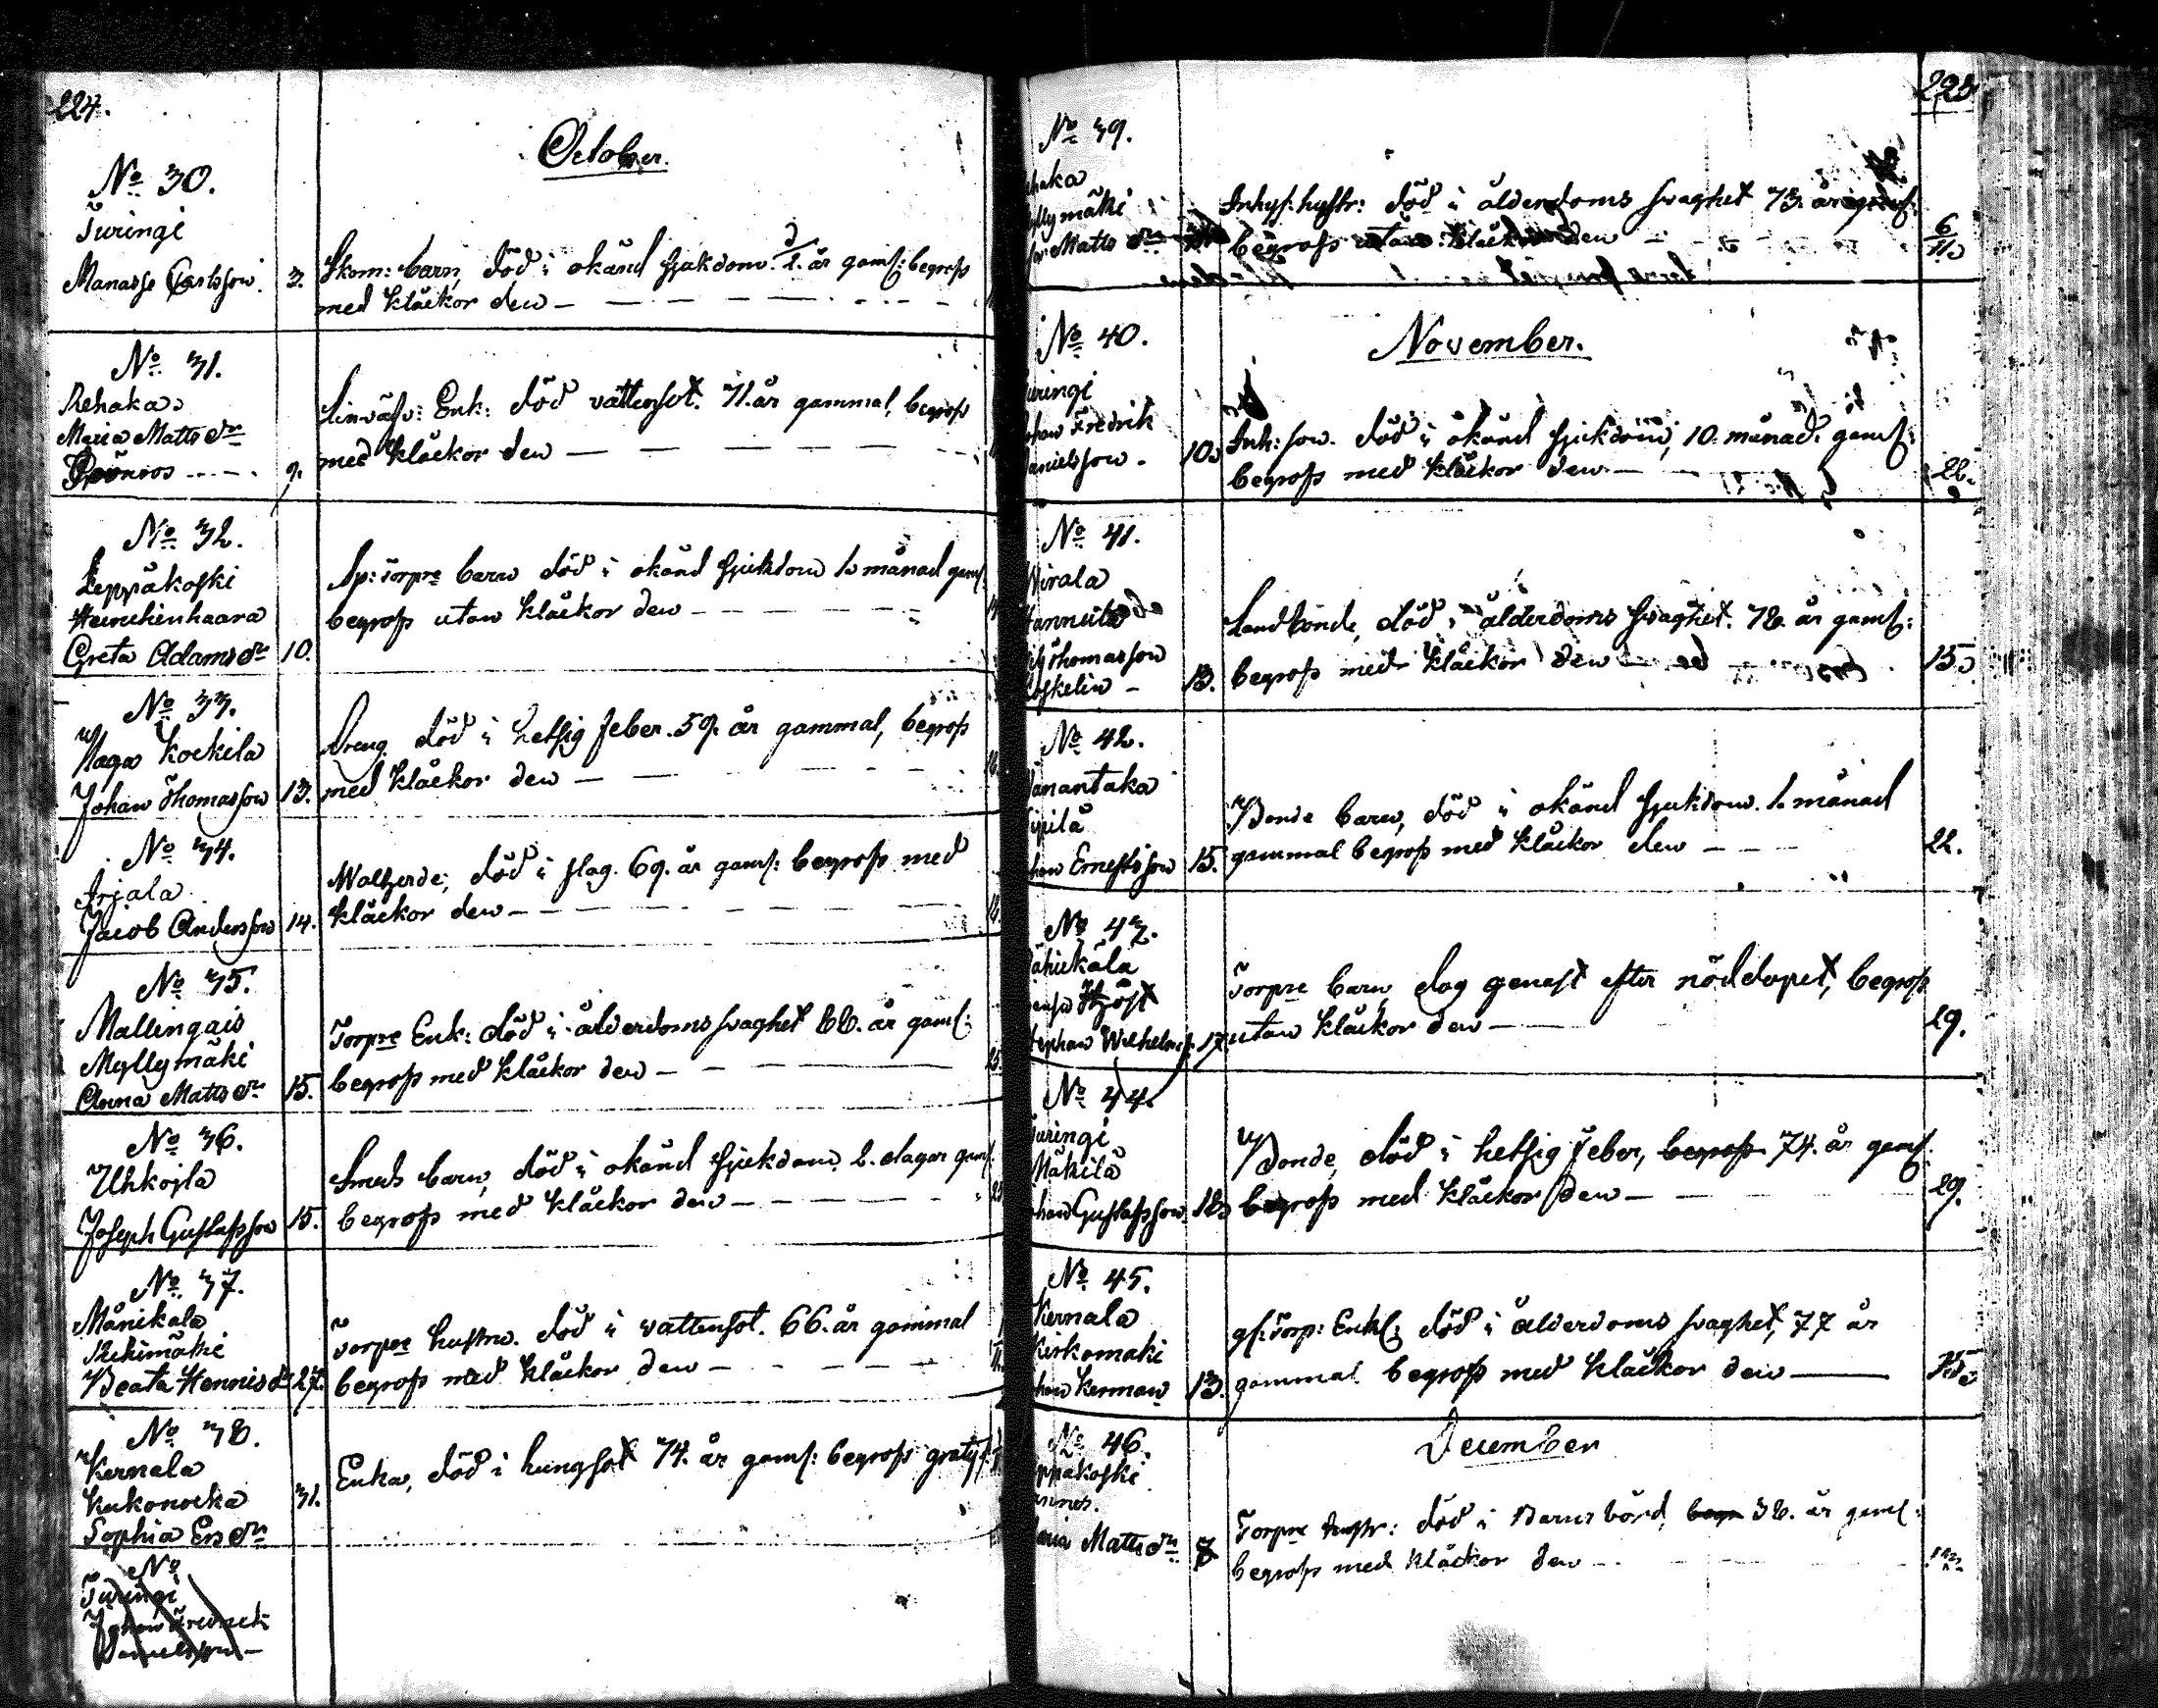 224.
October.
No 30.
Turingi
Manasse Carlsson. 3. Skom: barn, död i okänd sjukdom. 2. år gaml: begrofs
med kläckor den
No 31.
Rehaka
Maria Matts dr
9. Enk: död vattensot. 71. år gammal, begrofs
med kläckor den
No 32.
Leppäkoski
Heinehenhaara
Greta Adams dr 10. Sp: torpre barn död i okänd sjukdom 1. månad gaml:
begrofs utan kläckor den
No 33.
Kockila
Johan Thomasson 13. Dreng död i hetsig feber. 59. år gammal, begrofs
med kläckor den
No 34.
Irjala
Jacob Andersson 14. död i slag. 69. år gaml: begrofs med
kläckor den
No 35.
Mallingais
Myllymäki
Anna Matts dr 15. Torpre Enk: död i ålderdoms svaghet 66. år gaml:
begrofs med kläckor den
No 36.
Uhkoila
Joseph Gustafsson 15. Smeds barn, död i okänd sjukdom, 2. dagar gaml.
begrofs med kläckor den
No 37.
Månikala
Beata Hennis dr 27. Torpre hustru. död i vattensot. 66. år gammal
begrofs med kläckor den
No 38.
Kernala
Sophia Ers dr 31. Enka, död i lungsot 74. år gaml: begrofs gratis
No
Turingi
Johan Fredrick
Danielsson
225
No 39.
haka
yllymäki
Matts dr Inhys: hustr: död i ålderdoms svaghet 73. år
begrofs utan kläckor den 6/11
No 40.
November.
uringi
ohan Fredrik
anielsson. 10. Inh: son. död i okänd sjukdom, 10. månad. gaml:
begrofs med kläckor den 22.
No 41.
irala
annula
Thomasson
oskelin 13. Landbonde, död i ålderdoms svaghet. 72. år gaml:
begrofs med kläckor den 15.
No 42.
anantaka
han Ernestsson 15. Bonde barn, död i okänd sjukdom. 1. månad
gammal begrofs med kläckor den 22.
No 43.
ähiekala
tephan Wilhelm 17. Torpre barn, dog genast efter nöddopet, begrofs
utan kläckor den 29.
No 44.
uringi
Mäkilä
ohan Gustafsson 18. Bonde, död i hetsig feber, begrofs 74. år gaml.
begrofs med kläckor den 29.
No 45.
Kernala
Kirkomäki
han Kerman 13. Enkl: död i ålderdoms svaghet, 77 år
gammal begrofs med kläckor den
December
No 46.
ppäkoski
aria Matts dr 7 Torpre hustr: död i Barns börd, begr 38. år gaml:
begrofs med kläckor den 13.